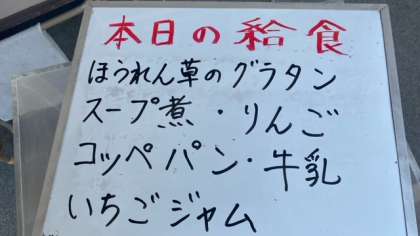 本日の給食
ほうれん草のグラタン
スープ煮・りんご
コッペパン・牛乳
いちごジャム